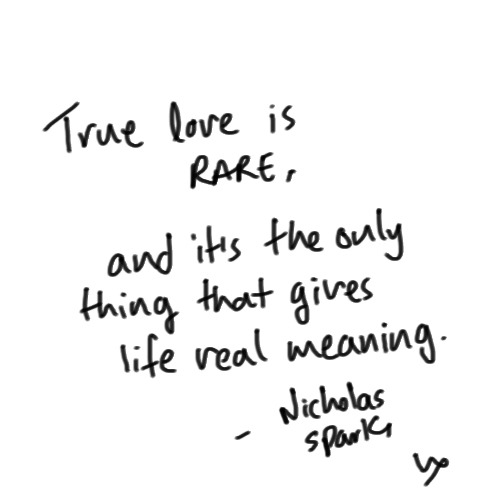 True love is
RARE,
and it's the only
thing that gives
life real meaning.
- Nicholas
Sparks